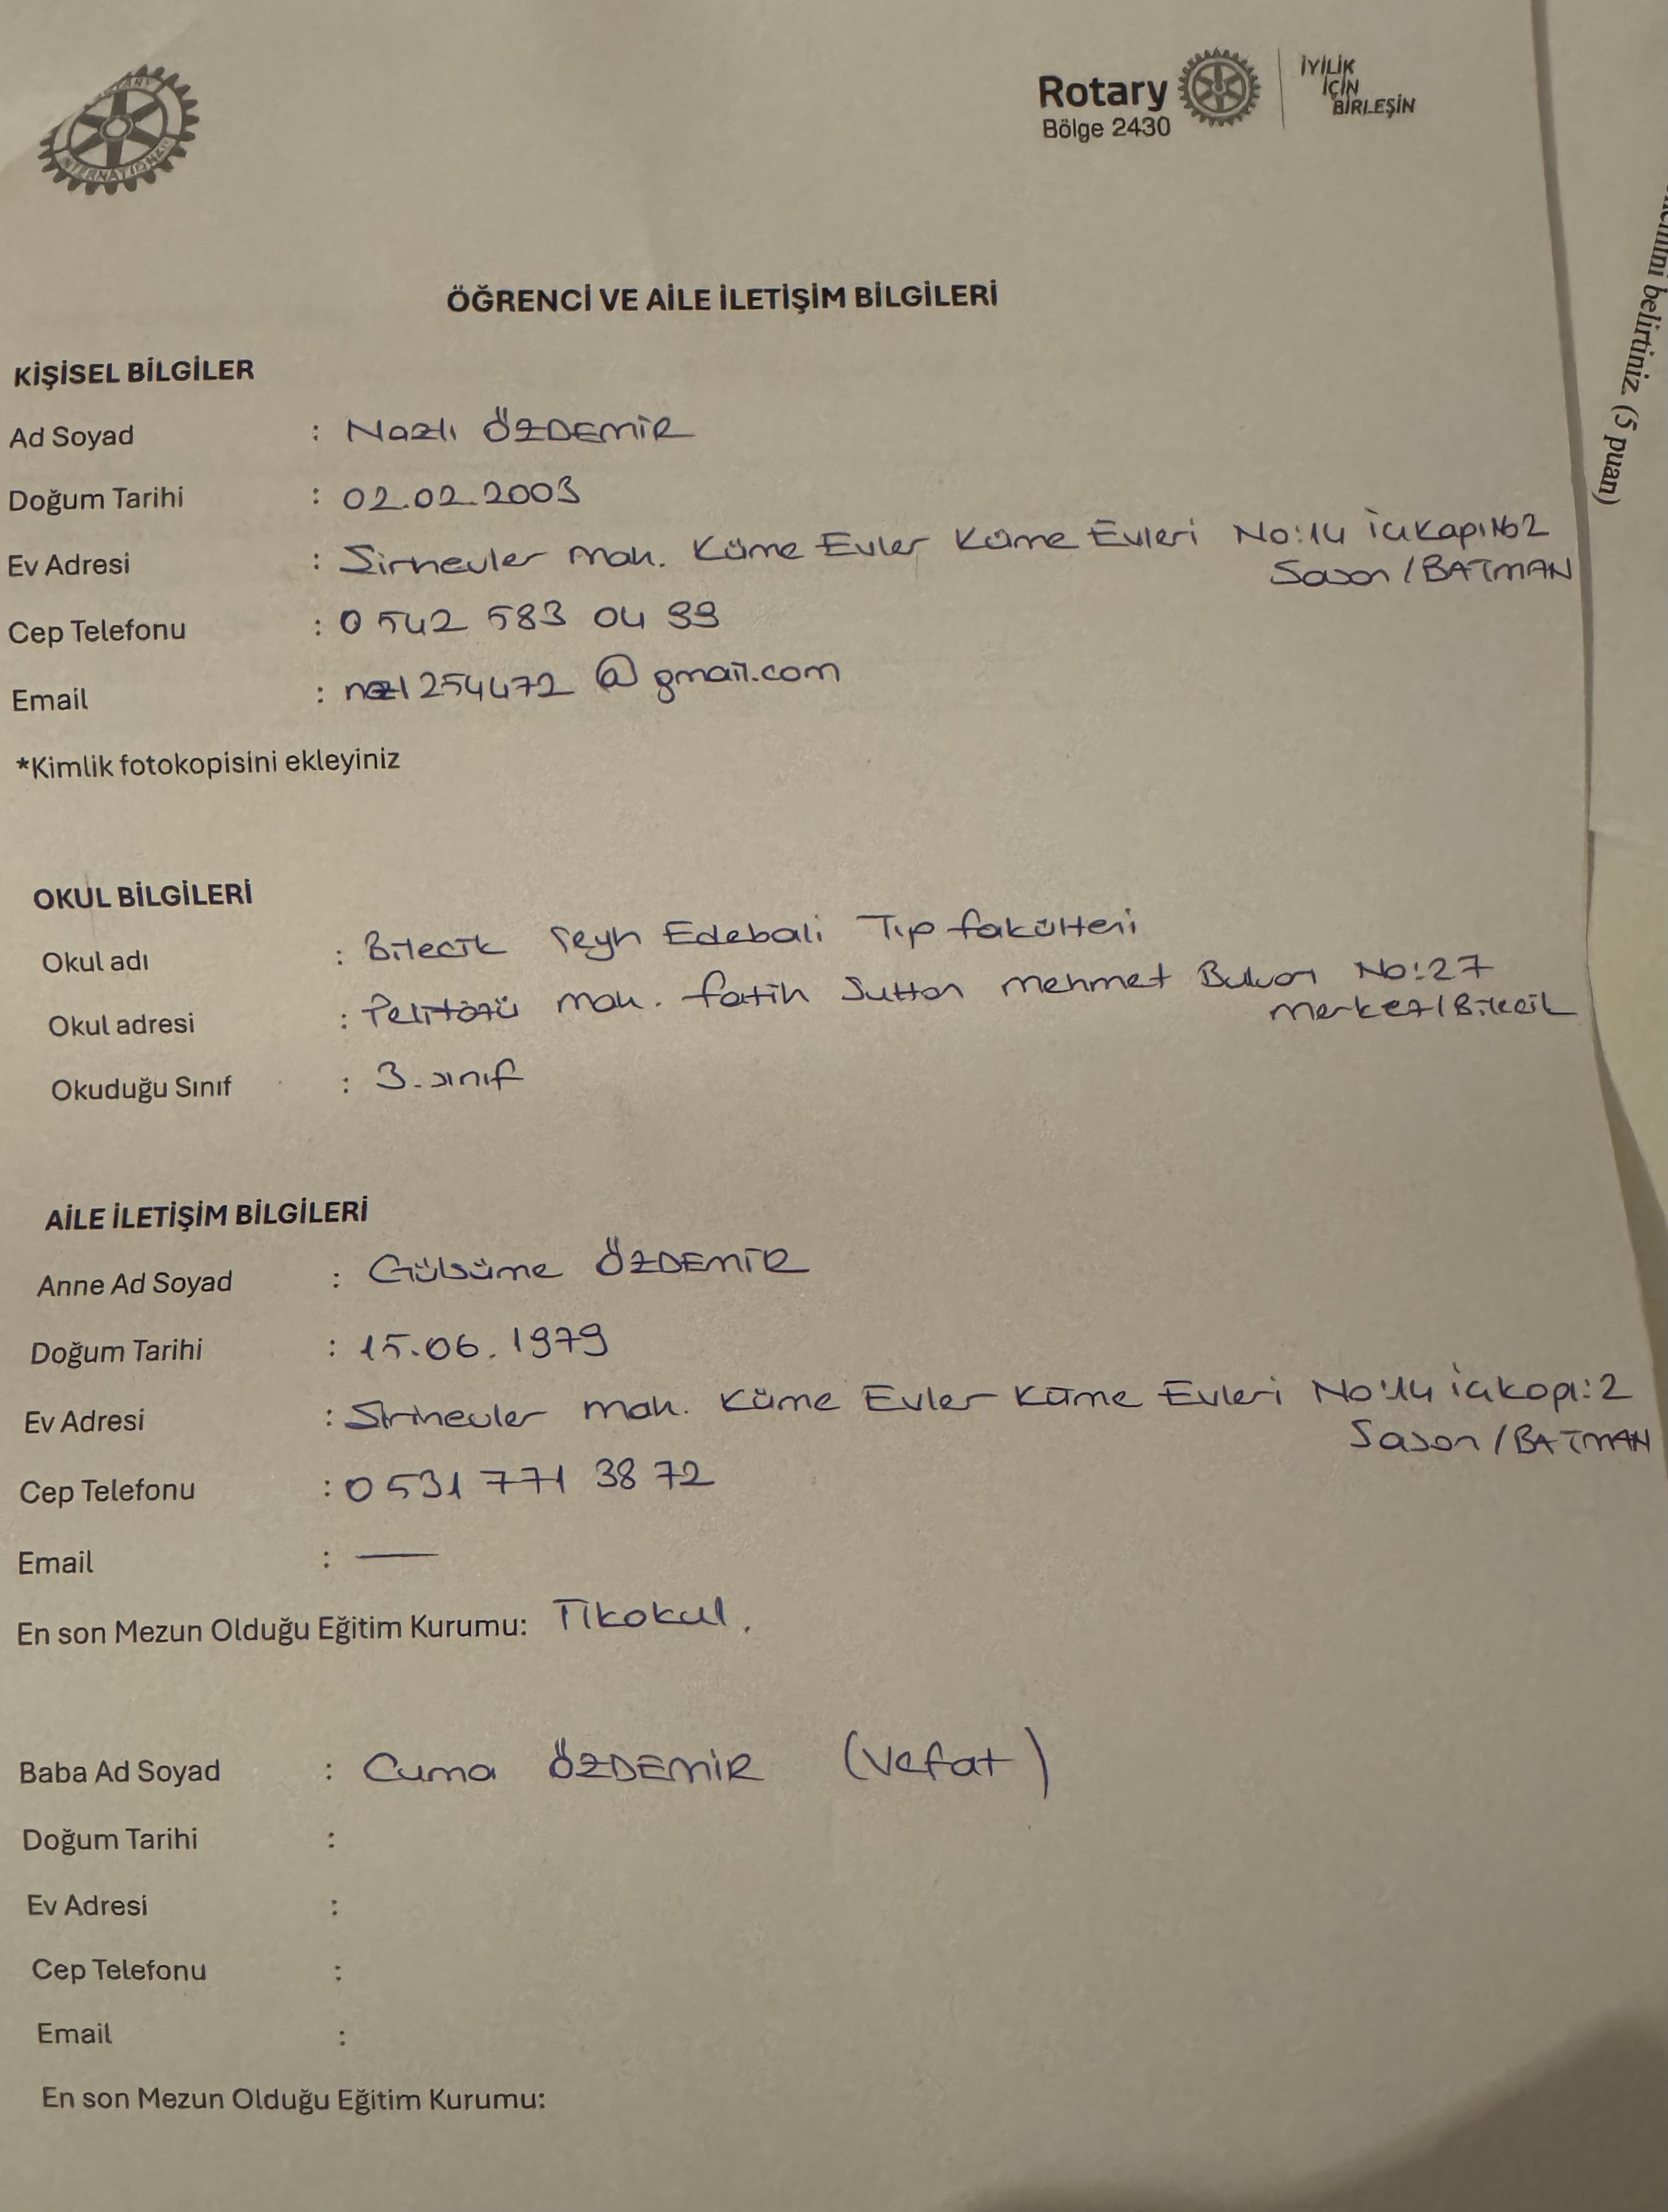 ROTARY INTERNATIONAL
Rotary
Bölge 2430
İYİLİK
İÇİN
BİRLEŞİN
ÖĞRENCİ VE AİLE İLETİŞİM BİLGİLERİ
KİŞİSEL BİLGİLER
Ad Soyad : Nazlı ÖZDEMİR
Doğum Tarihi : 02.02.2003
Ev Adresi : Şirinevler Mah. Küme Evler Küme Evleri No:14 İçkapı No2
Sason / BATMAN
Cep Telefonu : 0 542 583 04 99
Email : nazl254472@gmail.com
*Kimlik fotokopisini ekleyiniz
OKUL BİLGİLERİ
Okul adı : Bilecik Şeyh Edebali Tıp fakültesi
Okul adresi : Pelitözü Mah. Fatih Sultan Mehmet Bulvarı No:27
Merkez/Bilecik
Okuduğu Sınıf : 3. sınıf
AİLE İLETİŞİM BİLGİLERİ
Anne Ad Soyad : Gülsüme ÖZDEMİR
Doğum Tarihi : 15.06.1979
Ev Adresi : Şirinevler Mah. Küme Evler Küme Evleri No:14 içkapı:2
Sason / BATMAN
Cep Telefonu : 0 531 771 38 72
Email : —
En son Mezun Olduğu Eğitim Kurumu: İlkokul.
Baba Ad Soyad : Cuma ÖZDEMİR (Vefat)
Doğum Tarihi :
Ev Adresi :
Cep Telefonu :
Email :
En son Mezun Olduğu Eğitim Kurumu:
belirtiniz. (5 puan)